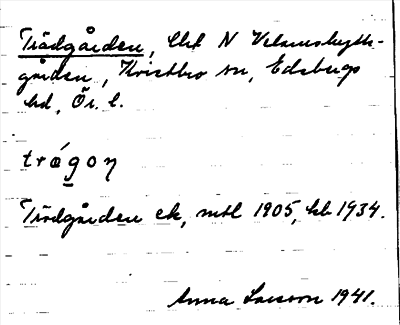 Trädgården, lht N Velamshytte-
gården, Kvistbro sn, Edsbergs
hd, Ör. l.
trǽgoŋ
Trädgården ek, mtl 1905, kb 1934.
Anna Larsson 1941.